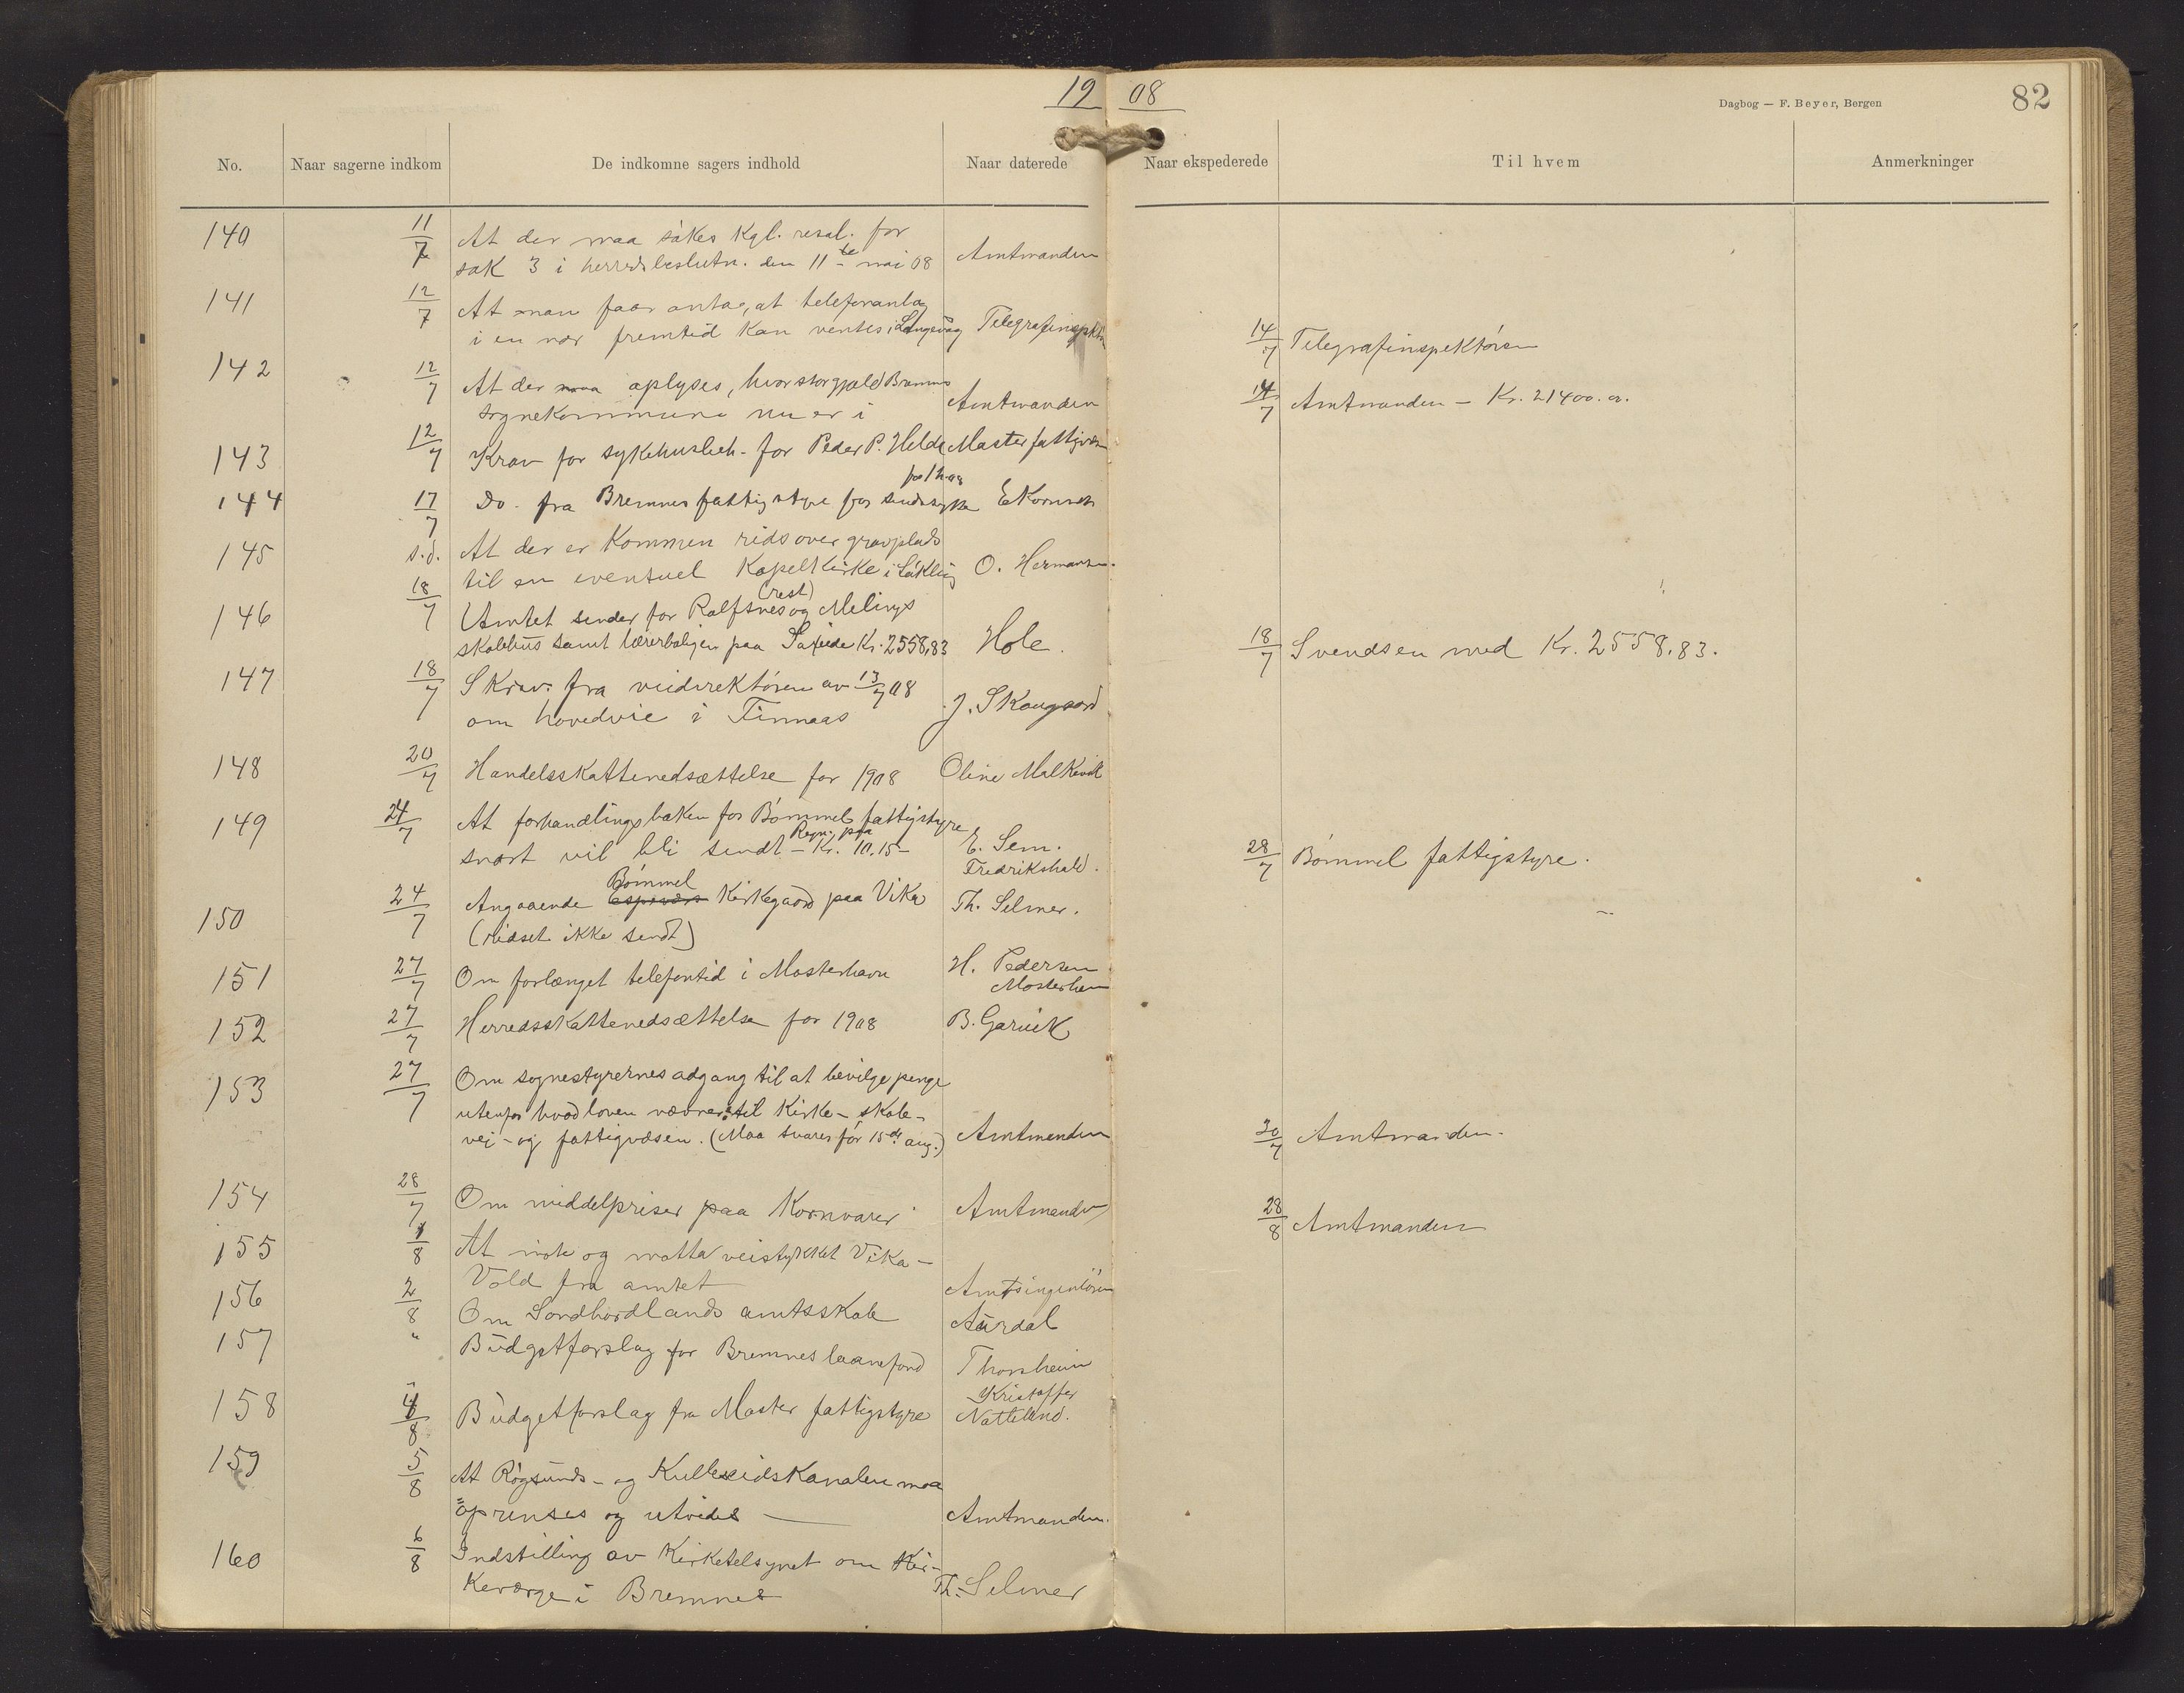 19 08
Dagbog — F. Beyer, Bergen
82
No. Naar sagerne indkom De indkomne sagers indhold Naar daterede Naar ekspederede Til hvem Anmerkninger
140 11/7 At der maa søkes kgl. resol. for
sak 3 i herredsbeslutn. den 11te mai 08 Amtmanden
141 12/7 At man faar anta, at telefonanlæg
i en nær fremtid kan ventes i Langevåg Telegrafinspektøren 14/7 Telegrafinspektøren
142 12/7 At der maa oplyses, hvor stor gjæld Bremnes
sognekommune nu er i Amtmanden 14/7 Amtmanden — Kr. 21400.00.
143 12/7 Krav for sykehusbeh. for Peder P. Helde Moster fattigvæsen
144 17/7 Do. fra Bremnes fattigstyre for sindssyke E Kornnes
145 s.d. At der er kommen rids over gravplads
til en eventuel Kapelkirke i Løkling O. Hermansen.
146 18/7 Amtet sender for Rolfsnes (rest) og Melings
skolehus samt lærerboligen paa Saxeide Kr. 2558,83 Hole. 18/7 Svendsen med Kr. 2558,83.
147 18/7 Skriv. fra veidirektøren av 13/7 08
om hovedveie i Finnaas J. Skougaard
148 20/7 Handelsskattenedsættelse for 1908 Oline Malkenik
149 24/7 At forhandlingsboken for Bømmel fattigstyre
snart vil bli sendt — Regn. paa Kr. 10.15 — E. Sem.
Fredrikshald. 28/7 Bømmel fattigstyre.
150 24/7 Angaaende Bømmel Kirkegaard paa Vika Th. Selmer.
(ridset ikke sendt)
151 27/7 Om forlænget telefontid i Mosterhavn H. Pedersen
Mosterhavn
152 27/7 Herredsskattenedsættelse for 1908 B. Garvik
153 27/7 Om sognestyrernes adgang til at bevilge penge
utenfor hvad loven nævner: til kirke-, skole-
vei- og fattigvæsen. (Maa svares før 15de aug.) Amtmanden 30/7 Amtmanden.
154 28/7 Om middelpriser paa kornvarer Amtmanden 28/8 Amtmanden
155 1/8 At møte og motta veistykket Vika-
Vold fra amtet Amtsingeniøren
156 2/8 Om Søndhordlands amtsskole Aurdal
157 " Budgetforslag for Bremnes laanefond Thorsheim
158 4/8 Budgetforslag fra Moster fattigstyre Kristoffer
Nattland.
159 5/8 At Røgsunds- og Kulleseidskanalen maa
oprenses og utvides — Amtmanden.
160 6/8 Indstilling av Kirketilsynet om kir-
keværge i Bremnes Th. Selmer